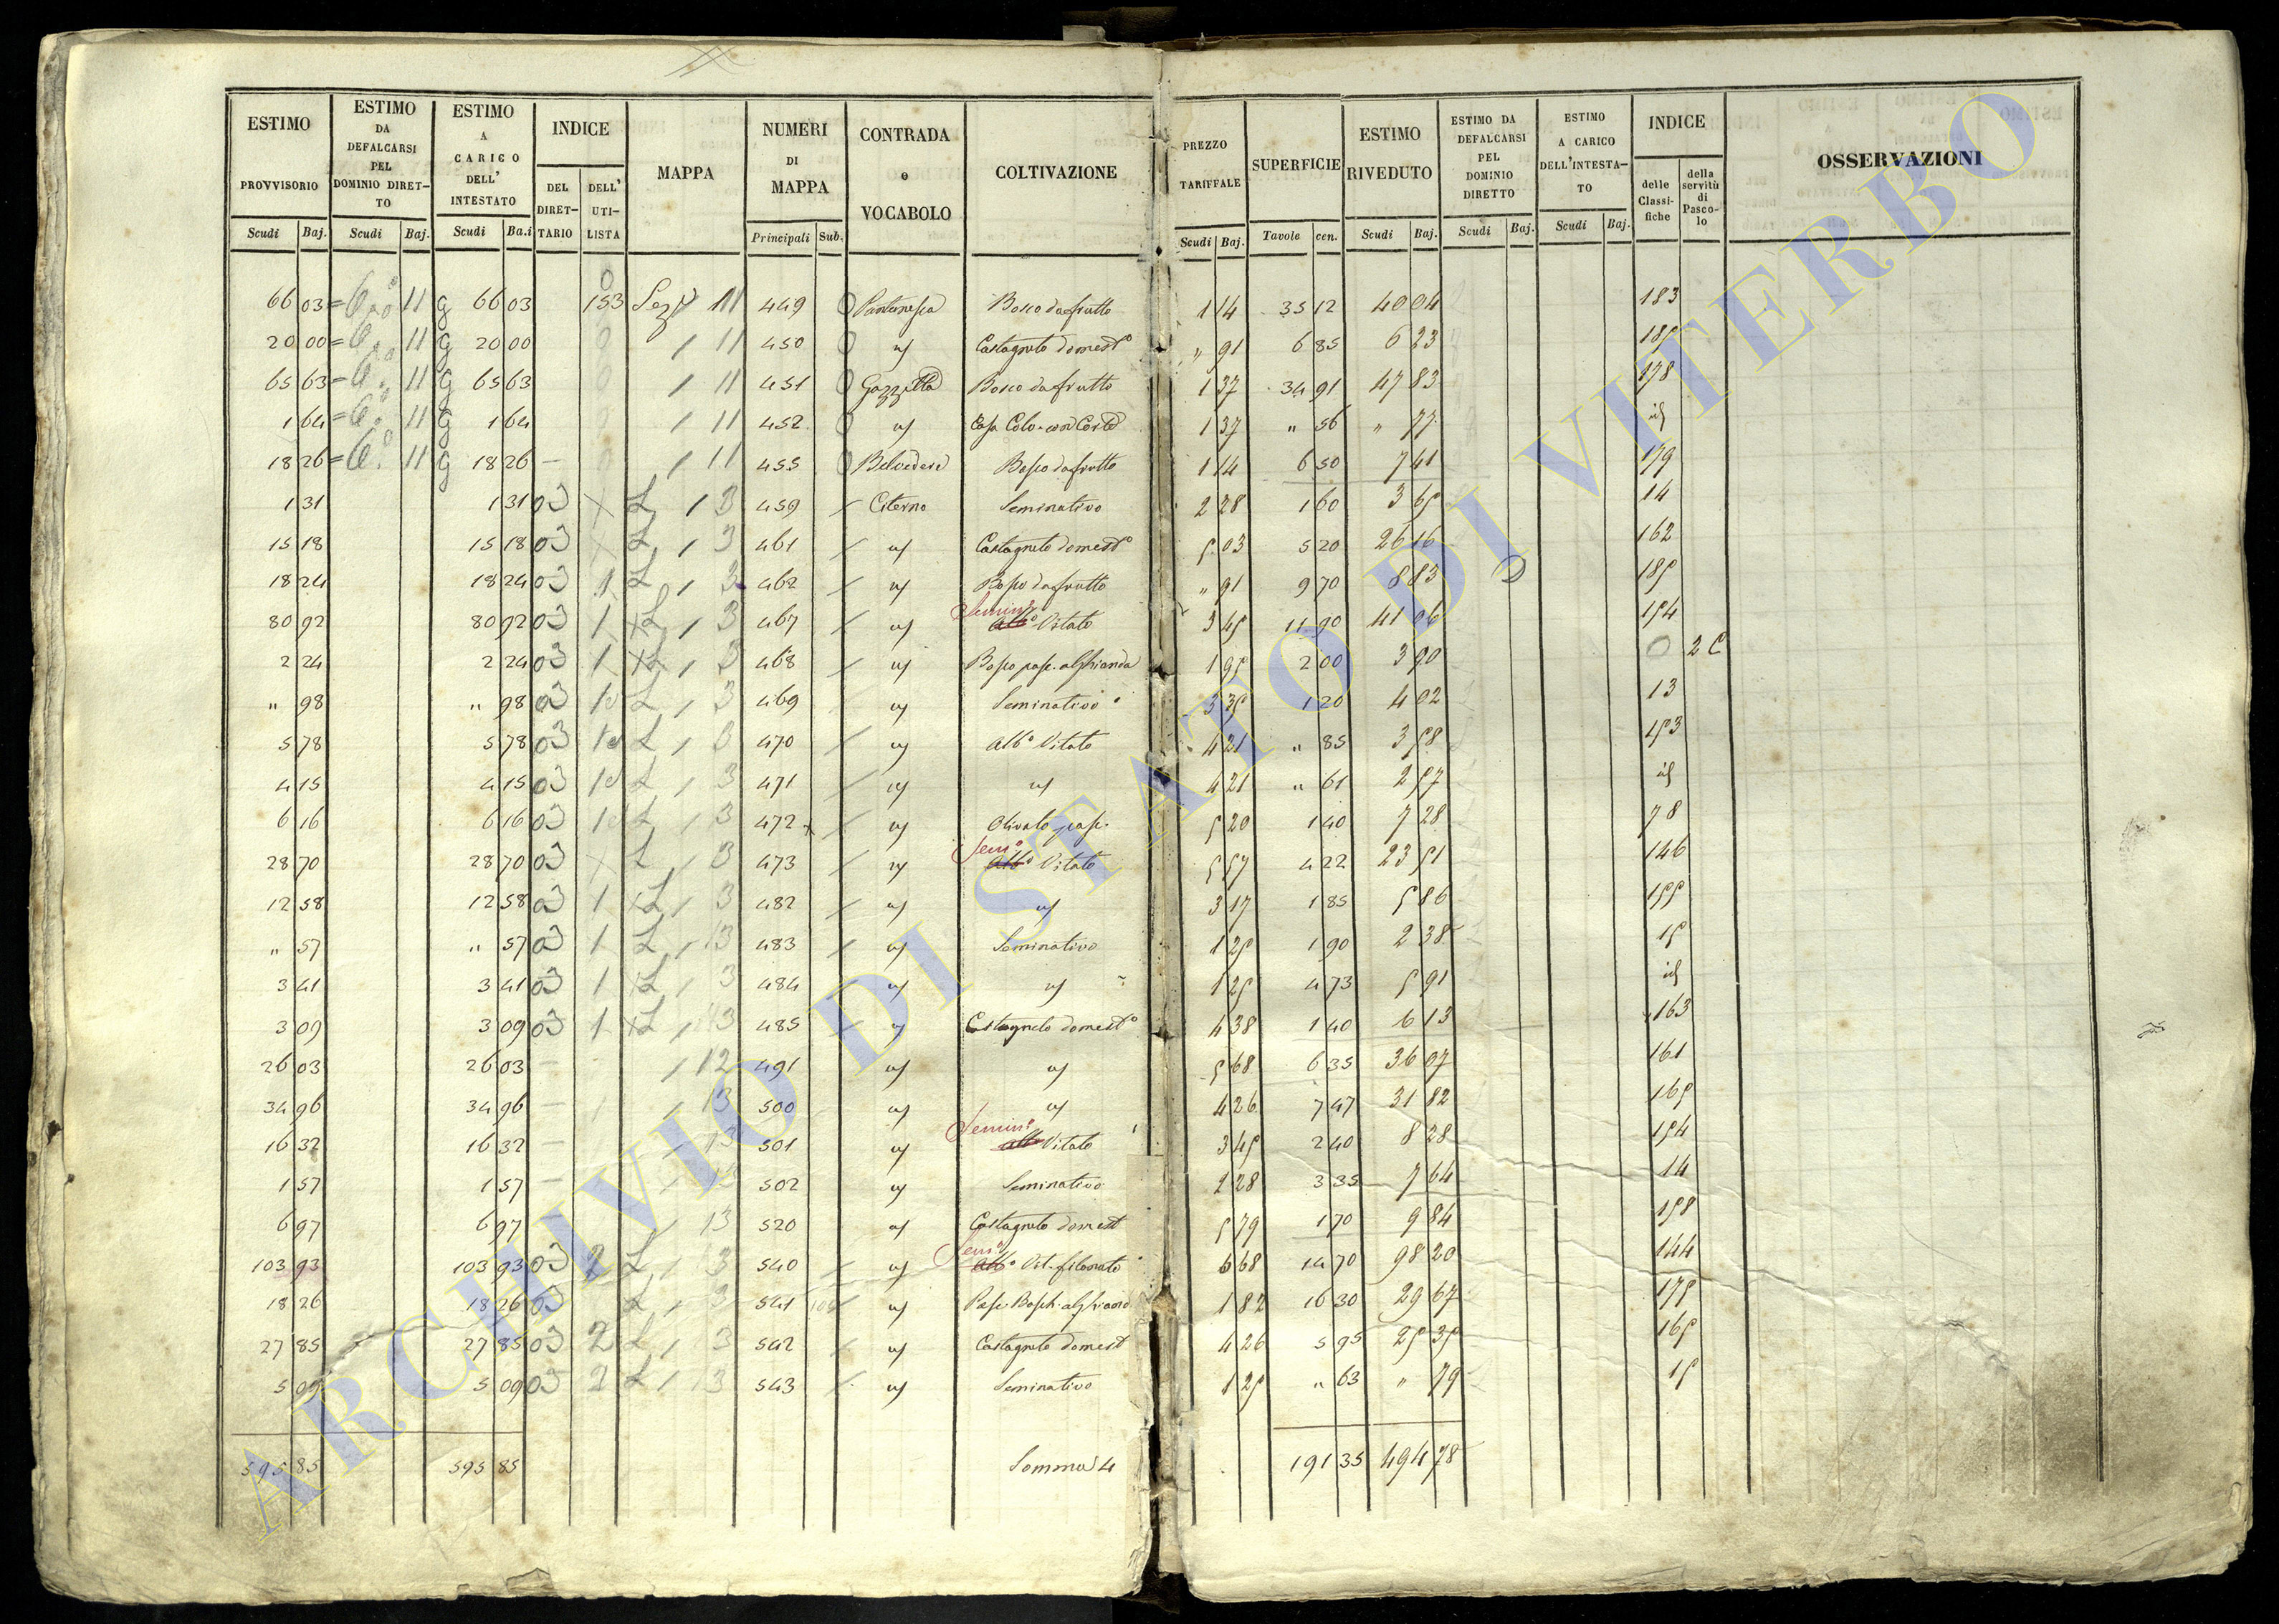 ESTIMO PROVVISORIO | ESTIMO DA DEFALCARSI PEL DOMINIO DIRET-TO | ESTIMO A CARICO DELL' INTESTATO | INDICE | MAPPA | NUMERI DI MAPPA | CONTRADA o VOCABOLO | COLTIVAZIONE | PREZZO TARIFFALE | SUPERFICIE | ESTIMO RIVEDUTO | ESTIMO DA DEFALCARSI PEL DOMINIO DIRETTO | ESTIMO A CARICO DELL'INTESTA-TO | INDICE | OSSERVAZIONI
DEL DIRET-TARIO | DELL' UTI-LISTA | delle Classi-fiche | della servitù di Pasco-lo
Scudi | Baj. | Scudi | Baj. | Scudi | Ba.i | Principali | Sub. | Scudi | Baj. | Tavole | cen. | Scudi | Baj. | Scudi | Baj. | Scudi | Baj.
66 03 | 11 g | 66 03 | 153 | 11 | 449 | Bosco da frutto | 1 14 | 35 12 | 40 04 | 183
20 00 | 11 g | 20 00 | 11 | 450 | Castagneto domest° | " 91 | 6 85 | 6 23 | 185
65 63 | 11 g | 65 63 | 11 | 451 | Bosco da frutto | 1 37 | 34 91 | 47 83 | 178
1 64 | 11 g | 1 64 | 11 | 452 | Casa Colo. con Corte | 1 37 | " 56 | " 77 | id
18 26 | 11 g | 18 26 | 11 | 455 | Belvedere | Bosco da frutto | 1 14 | 6 50 | 7 41 | 179
1 31 | 1 31 | 03 | L | 3 | 459 | Citerno | Seminativo | 2 28 | 1 60 | 3 65 | 14
15 18 | 15 18 | 03 | L | 3 | 461 | Castagneto domest° | 5 03 | 5 20 | 26 16 | 162
18 24 | 18 24 | 03 | 1 | L | 3 | 462 | Bosco da frutto | " 91 | 9 70 | 8 83 | 185
80 92 | 80 92 | 03 | 1 | L | 3 | 467 | Semin° Alb° Vitato | 3 45 | 11 90 | 41 06 | 154
2 24 | 2 24 | 03 | 1 | L | 3 | 468 | Bosco pasc. a ghianda | 1 95 | 2 00 | 3 90 | 0 | 2 C
" 98 | " 98 | 03 | L | 3 | 469 | Seminativo | 3 35 | 1 20 | 4 02 | 13
5 78 | 5 78 | 03 | L | 3 | 470 | Alb° Vitato | 4 21 | " 85 | 3 58 | 153
4 15 | 4 15 | 03 | L | 3 | 471 | 4 21 | " 61 | 2 57 | id
6 16 | 6 16 | 03 | L | 3 | 472 | Olivato pasc. | 5 20 | 1 40 | 7 28 | 78
28 70 | 28 70 | 03 | L | 3 | 473 | Sem° Alb° Vitato | 5 57 | 4 22 | 23 51 | 146
12 58 | 12 58 | 03 | 1 | L | 3 | 482 | 3 17 | 1 85 | 5 86 | 155
" 57 | " 57 | 03 | 1 | L | 13 | 483 | Seminativo | 1 25 | 1 90 | 2 38 | 15
3 41 | 3 41 | 03 | 1 | L | 3 | 484 | 1 25 | 4 73 | 5 91 | id
3 09 | 3 09 | 03 | 1 | L | 3 | 485 | Castagneto domest° | 4 38 | 1 40 | 6 13 | 163
26 03 | 26 03 | 12 | 491 | 5 68 | 6 35 | 36 07 | 161
34 96 | 34 96 | 13 | 500 | 4 26 | 7 47 | 31 82 | 165
16 32 | 16 32 | 13 | 501 | Semin° Alb° Vitato | 3 45 | 2 40 | 8 28 | 154
1 57 | 1 57 | 502 | Seminativo | 2 28 | 3 35 | 7 64 | 14
6 97 | 6 97 | 13 | 520 | Castagneto domest | 5 79 | 1 70 | 9 84 | 158
103 93 | 103 93 | 03 | 2 | L | 3 | 540 | Sem° Alb° Vit. filonato | 6 68 | 14 70 | 98 20 | 144
18 26 | 18 26 | 03 | L | 3 | 541 | 1 82 | 16 30 | 29 67 | 175
27 85 | 27 85 | 03 | 2 | L | 3 | 542 | Castagneto domest | 4 26 | 5 95 | 25 35 | 165
5 09 | 5 09 | 03 | 2 | L | 13 | 543 | Seminativo | 1 25 | " 63 | " 79 | 15
595 85 | 595 85 | Somma 4 | 191 35 | 494 78
ARCHIVIO DI STATO DI VITERBO